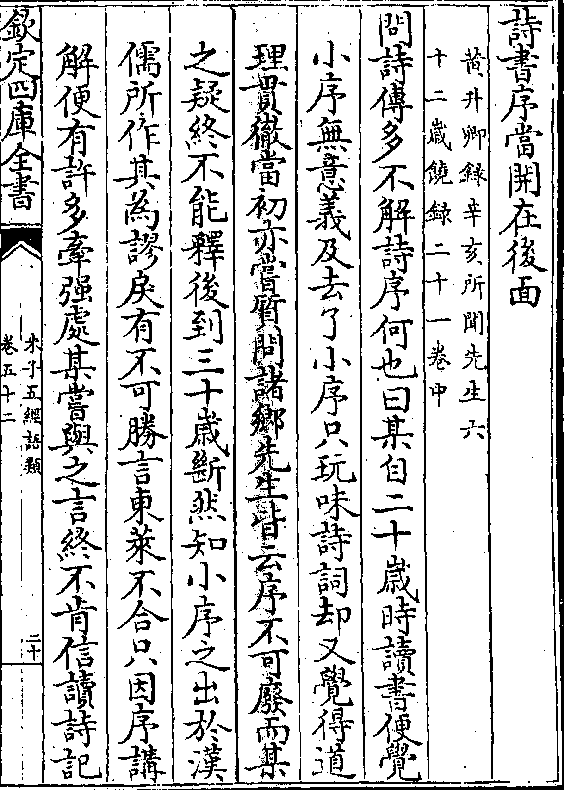 詩書序當開在後面
黄升卿録辛亥所聞先生六
十二嵗饒録二十一卷中
問詩傳多不解詩序何也曰某自二十歳時讀書便覺
小序無意義及去了小序只玩味詩詞却又覺得道
理貫徹當初亦嘗質問諸鄉先生皆云序不可廢而某
之疑終不能釋後到三十歳斷然知小序之出於漢
儒所作其為謬戾有不可勝言東萊不合只因序講
解便有許多牽强處某嘗與之言終不肯信讀詩記
欽定四庫全書
朱子五經語類
卷五十二
二十